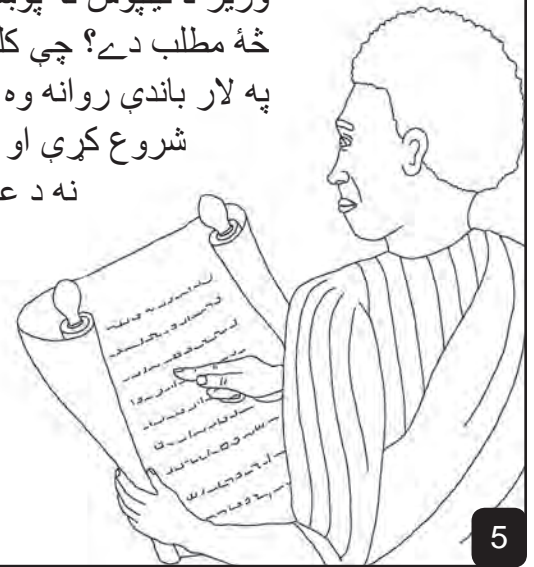 وزیر د
څۀ مطلب دے؟ چې کل
په لار باندې روانه وه
شروع کړې او
نه د ع
5